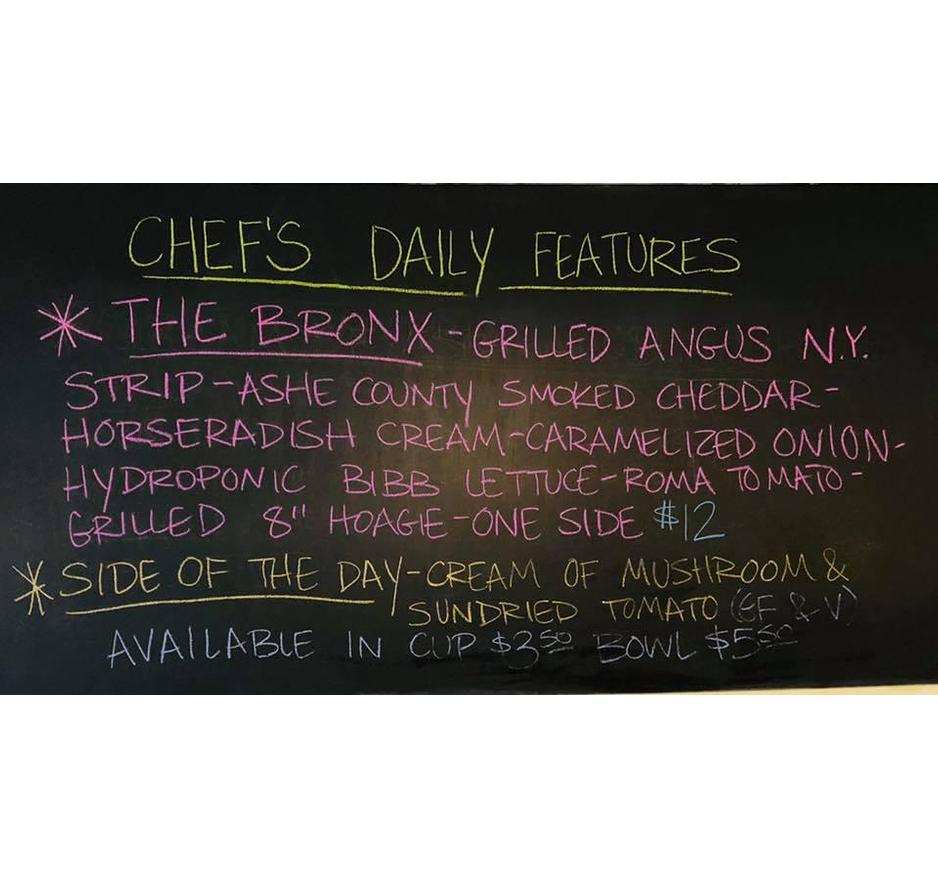 CHEF'S DAILY FEATURES
* THE BRONX - GRILLED ANGUS N.Y.
STRIP - ASHE COUNTY SMOKED CHEDDAR -
HORSERADISH CREAM - CARAMELIZED ONION -
HYDROPONIC BIBB LETTUCE - ROMA TOMATO -
GRILLED 8" HOAGIE - ONE SIDE $12
* SIDE OF THE DAY - CREAM OF MUSHROOM &
SUNDRIED TOMATO (GF & V)
AVAILABLE IN CUP $3.50 BOWL $5.50